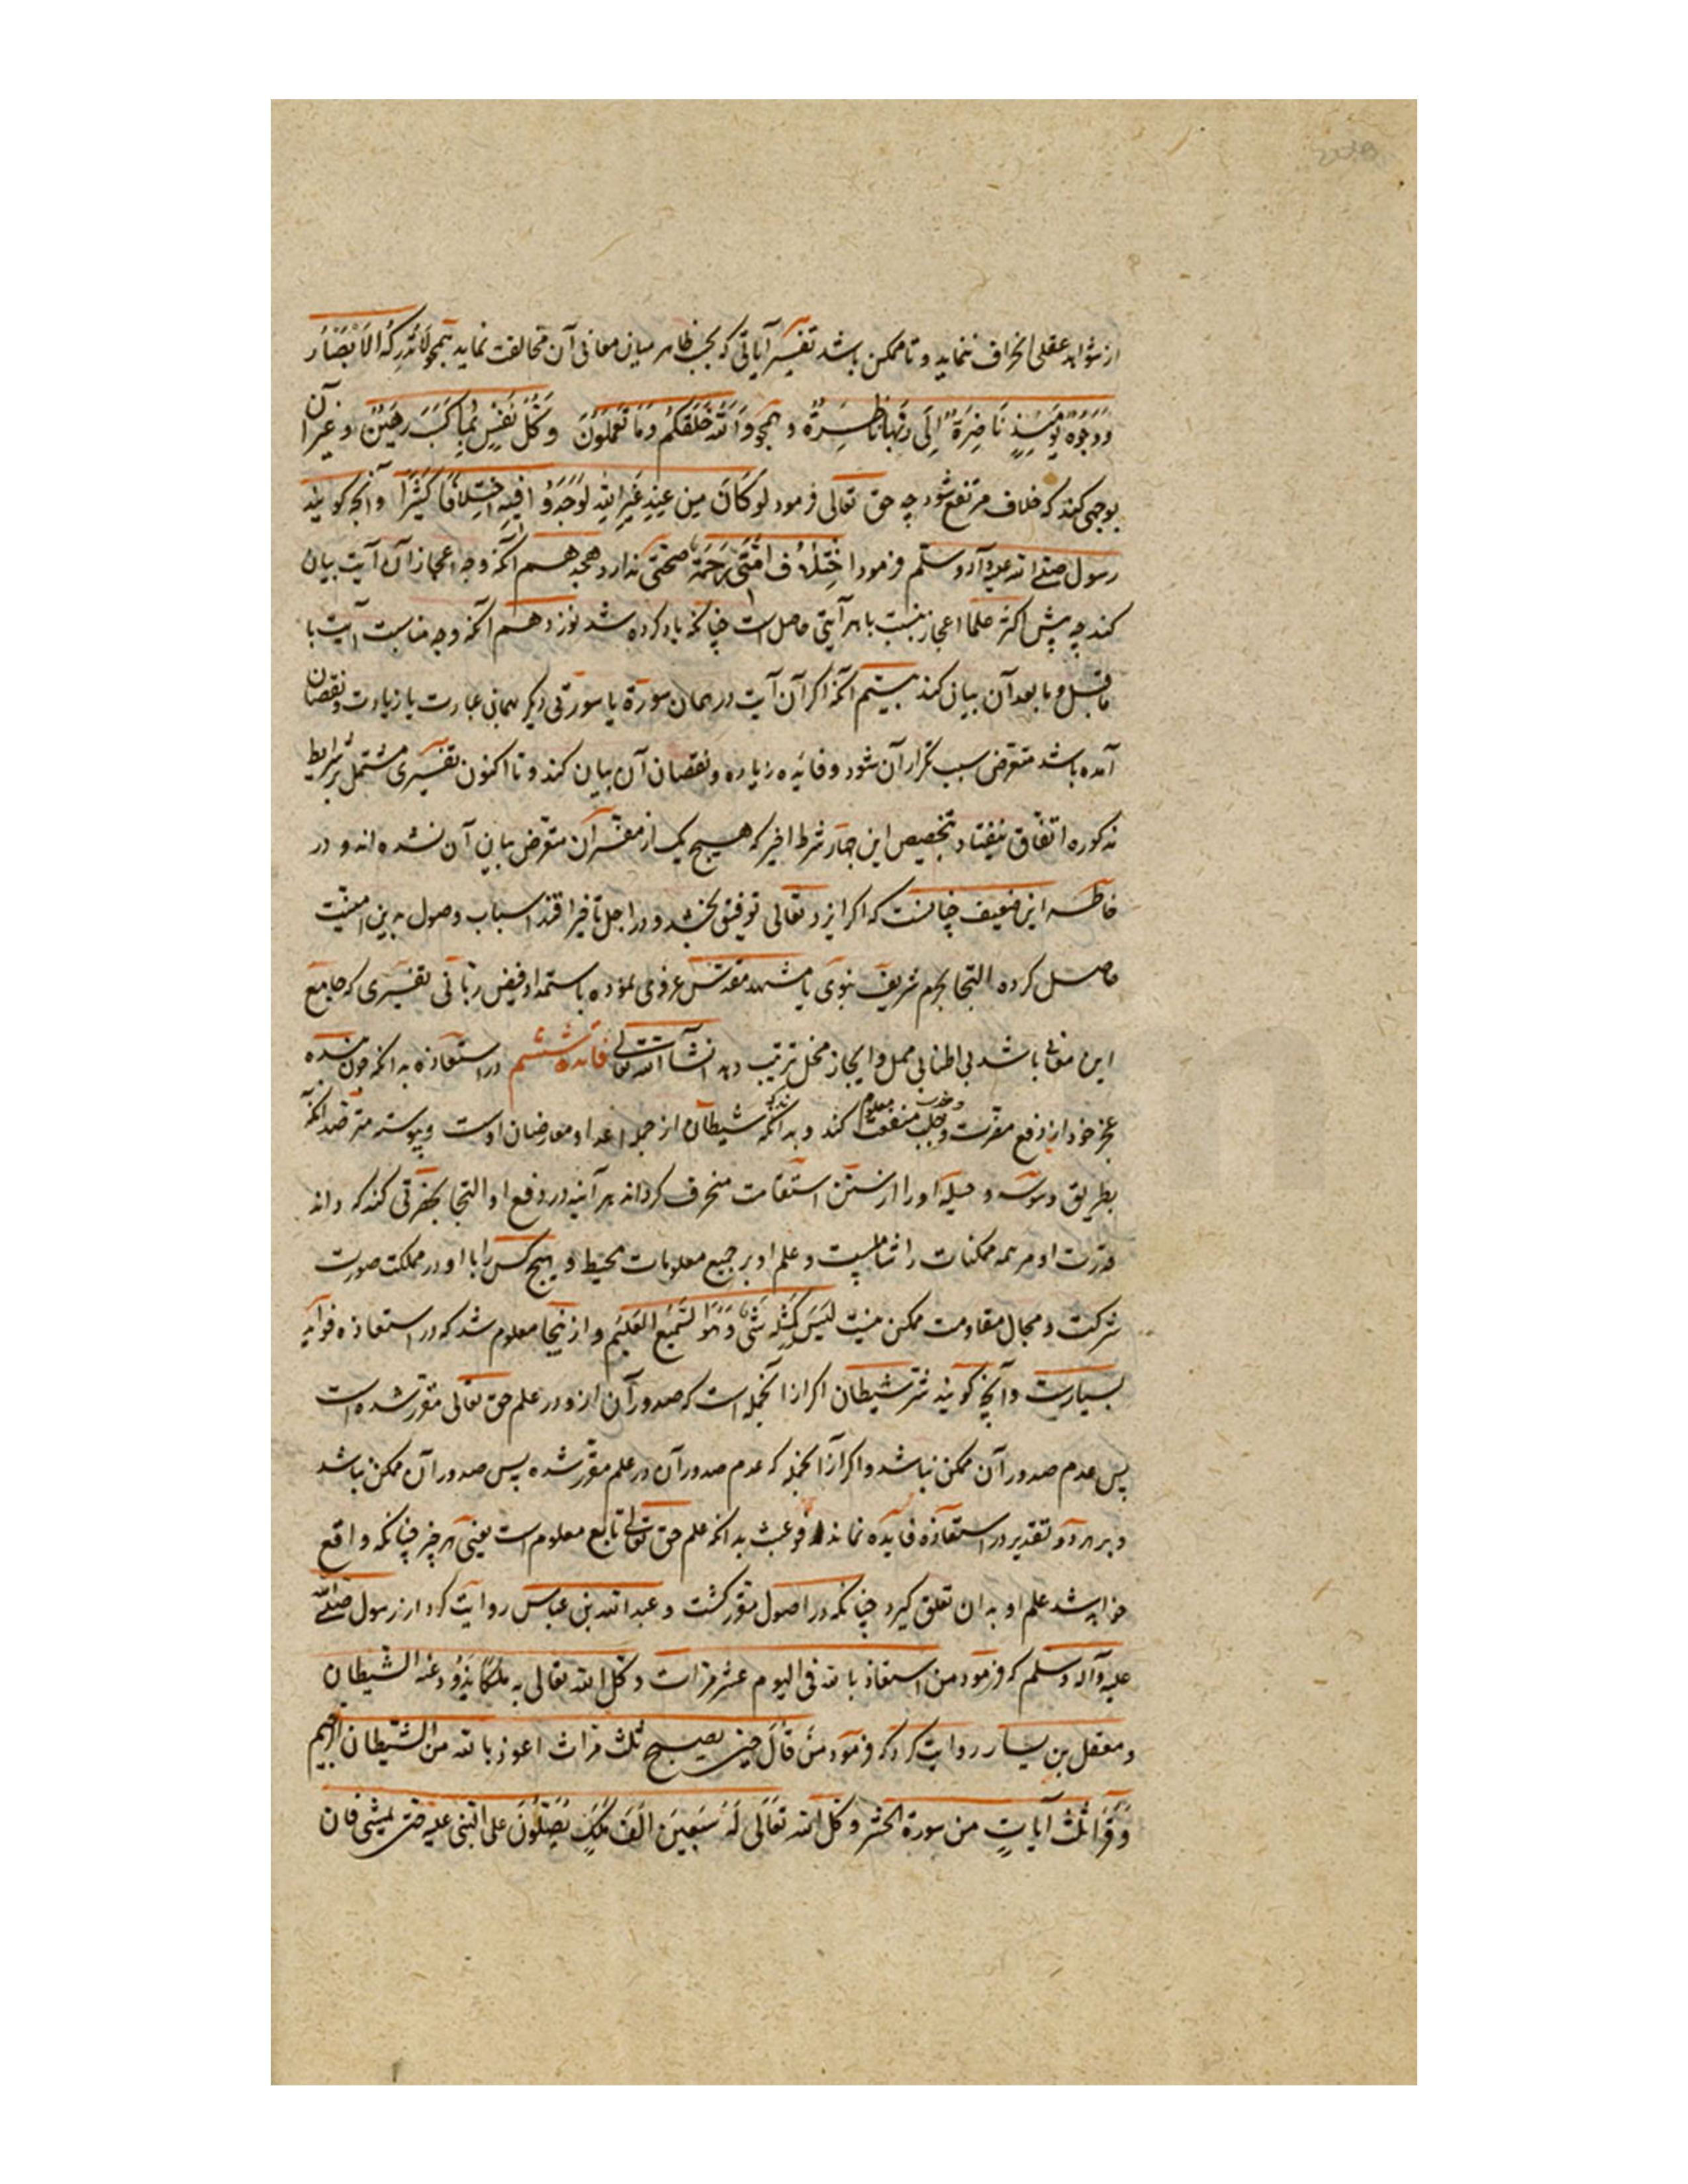 از شواهد عقلی انحراف ننماید و تا ممکن باشد تفسیر آیاتی که بحسب ظاهر میان معانی آن مخالفت نماید همچو لَا تُدْرِکُهُ الاَبْصَارُ
وَوُجُوهٌ یَوْمَئِذٍ نَاضِرَةٌ اِلَی رَبِّهَا نَاظِرَةٌ و همچو وَاَللّه خَلَقَکُم وَمَا تَعمَلُونَ وَکُلُّ نَفْسٍ بِمَا کَسَبَتْ رَهِیْنَةٌ و غیر آن
بوجهی کند که خلاف مرتفع شود چه حق تعالی فرمود لَو کَانَ مِن عِندِ غَیْرِ اللّه لَوَجَدُوا فِیهِ اِختِلَافًا کَثِیْرًا وانچه کویند
رسول صلی الله علیه وآله وسلم فرمود اختِلَافُ اُمَّتی رَحْمَة صحتی ندارد هجدهم آنکه وجه اعجاز آن آیت بیان
کند چه پیش اکثر علما اعجاز نسبت با هر آیتی حاصل است چنانکه یاد کرده شد نوزدهم آنکه وجه مناسبت آیت با
ماقبل و مابعد آن بیان کند بیستم آنکه اکر آن آیت در همان سورة یا سورتی دیکر بهمان عبارت یا زیادت و نقصان
آمده باشد متعرض سبب تکرار آن شود و فائده زیاده و نقصان آن بیان کند و تا اکنون تفسیری مشتمل بر شرایط
مذکوره اتفاق نیفتاد بتخصیص این چهار شرط اخیر که هیچ یک از مفسران متعرض بیان آن نشده اند و در
خاطر این ضعیف چنانست که اکر ایزد تعالی توفیق بخشد و در اجل تاخیر افتد اسباب وصول به این امنیت
حاصل کرده التجا بحرم شریف نبوی یا مشهد مقدس غروی نموده باستمداد فیض ربانی تفسیری که جامع
این معانی باشد بی اطناب ممل و ایجاز مخل ترتیب دهد انشآ الله تعالی فائده ششم در استعاذه بدانکه چون بنده
عجز خود از دفع مضرت و جلب منفعت معلوم کند و بدانکه شیطان از جمله اعدا و معارضان اوست و پیوسته مترصد آنکه
بطریق وسوسه و حیله او را از سنن استقامت منحرف کرداند هر آینه در دفع او التجا بحضرتی کند که داند
قدرت او مر همه ممکنات را شاملست و علم او بر جمیع معلومات محیط و هیچ کس را با او در مملکت صورت
شرکت و مجال مقاومت ممکن نیست لَیْسَ کَمِثْلِهِ شَیْءٌ وَهُوَ السَّمِیْعُ العَلِیْم و از اینجا معلوم شد که در استعاذه فواید
بسیارست وآنچه کویند شر شیطان اکر از آنجمله است که صدور آن ازو در علم حق تعالی مقرر شده است
پس عدم صدور آن ممکن نباشد و اکر از آنجمله که عدم صدور آن در علم مقرر شده پس صدور آن ممکن نباشد
و بر هر دو تقدیر در استعاذه فایده نماند بدانکه علم حق تعالی تابع معلوم است یعنی هر چیز چنانکه واقع
خواهد شد علم او بدان تعلق کیرد چنانکه در اصول مقرر کشت و عبد الله بن عباس روایت کرد از رسول صلی الله
علیه وآله وسلم که فرمود من استعاذ بالله فی الیوم عشر مرات وکل الله تعالی به ملکا یذود عنه الشیطان
و معقل بن یسار روایت کرد که فرمود مَن قَالَ حین یصبح ثلث مرات اعوذ بالله من الشیطان الرجیم
وَقَرَأَ ثَلٰثَ آیَاتٍ من سورة الحشر وکل الله تَعَالَی لَهُ سَبعِیْنَ اَلفَ مَلَکٍ یُصَلُّوْنَ علیه حتی یمشی فان